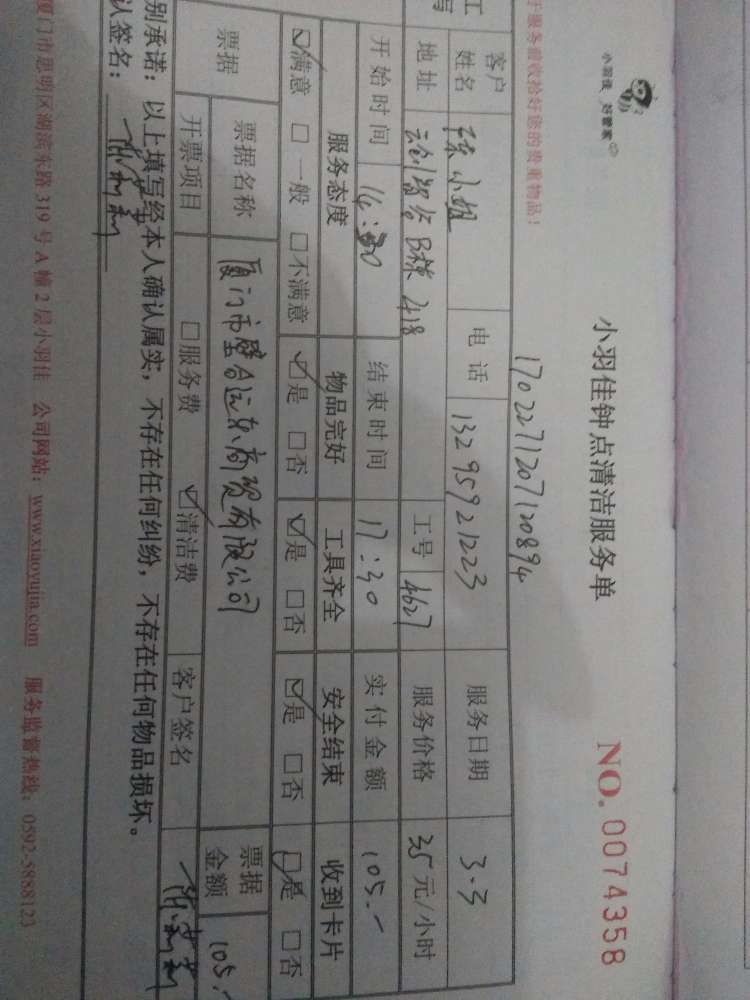 小羽佳 好管家
小羽佳钟点清洁服务单
NO. 0074358
于服务前收拾好您的贵重物品!
1702271207120894
工
客户
姓名 徐小姐 电话 13295921223 服务日期 3.3
地址 B栋 418 工号 4627 服务价格 35元/小时
开始时间 14:30 结束时间 17:30 实付金额 105.-
服务态度 物品完好 工具齐全 安全结束 收到卡片
☑满意 □一般 □不满意 ☑是 □否 ☑是 □否 ☑是 □否 ☑是 □否
票据 票据名称 厦门市 商贸有限公司 票据金额 105.-
开票项目 □服务费 ☑清洁费 客户签名
别承诺：以上填写经本人确认属实，不存在任何纠纷，不存在任何物品损坏。
认签名：
厦门市思明区湖滨东路 319 号 A 幢 2 层小羽佳 公司网站：www.xiaoyujia.com 服务监督热线：0592-5888123